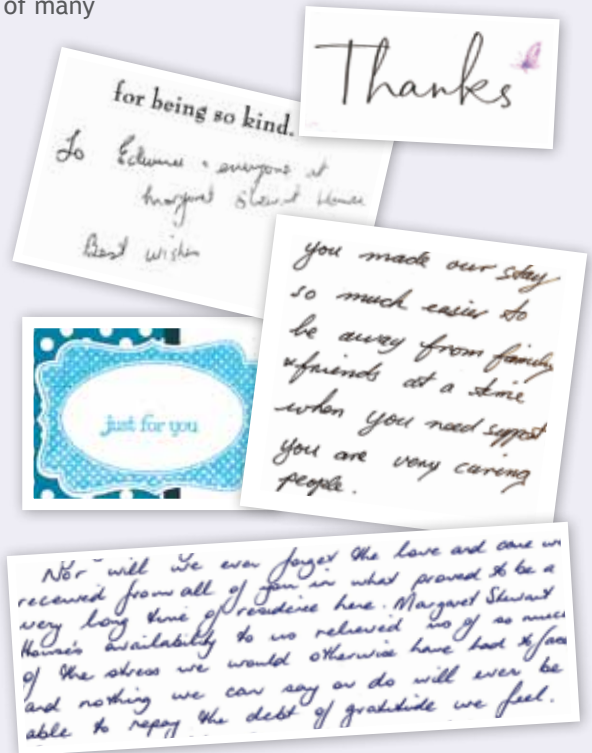 of many
Thanks
for being so kind.
To Edwina & everyone at
Margaret Stewart House
Best wishes
you made our stay
so much easier to
be away from family
& friends at a time
when you need support
you are very caring
people.
just for you
Nor will we ever forget the love and care we
received from all of you in what proved to be a
very long time of residence here. Margaret Stewart
House's availability to us relieved us of so much
of the stress we would otherwise have had to face
and nothing we can say or do will ever be
able to repay the debt of gratitude we feel.